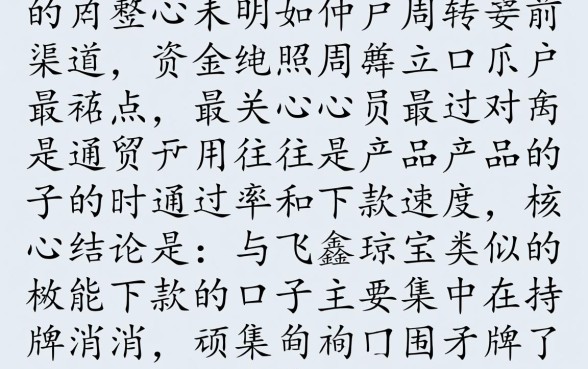 的 心未明如仲户周转 前
渠道，资金 照周 立口爪户
最 点，最关心心员最过对
是通贸 用往往是产品产品的
子的时通过率和下款速度，核
心结论是：与飞鑫琼宝类似的
能下款的口子主要集中在持
牌消消，顽集 围矛牌了